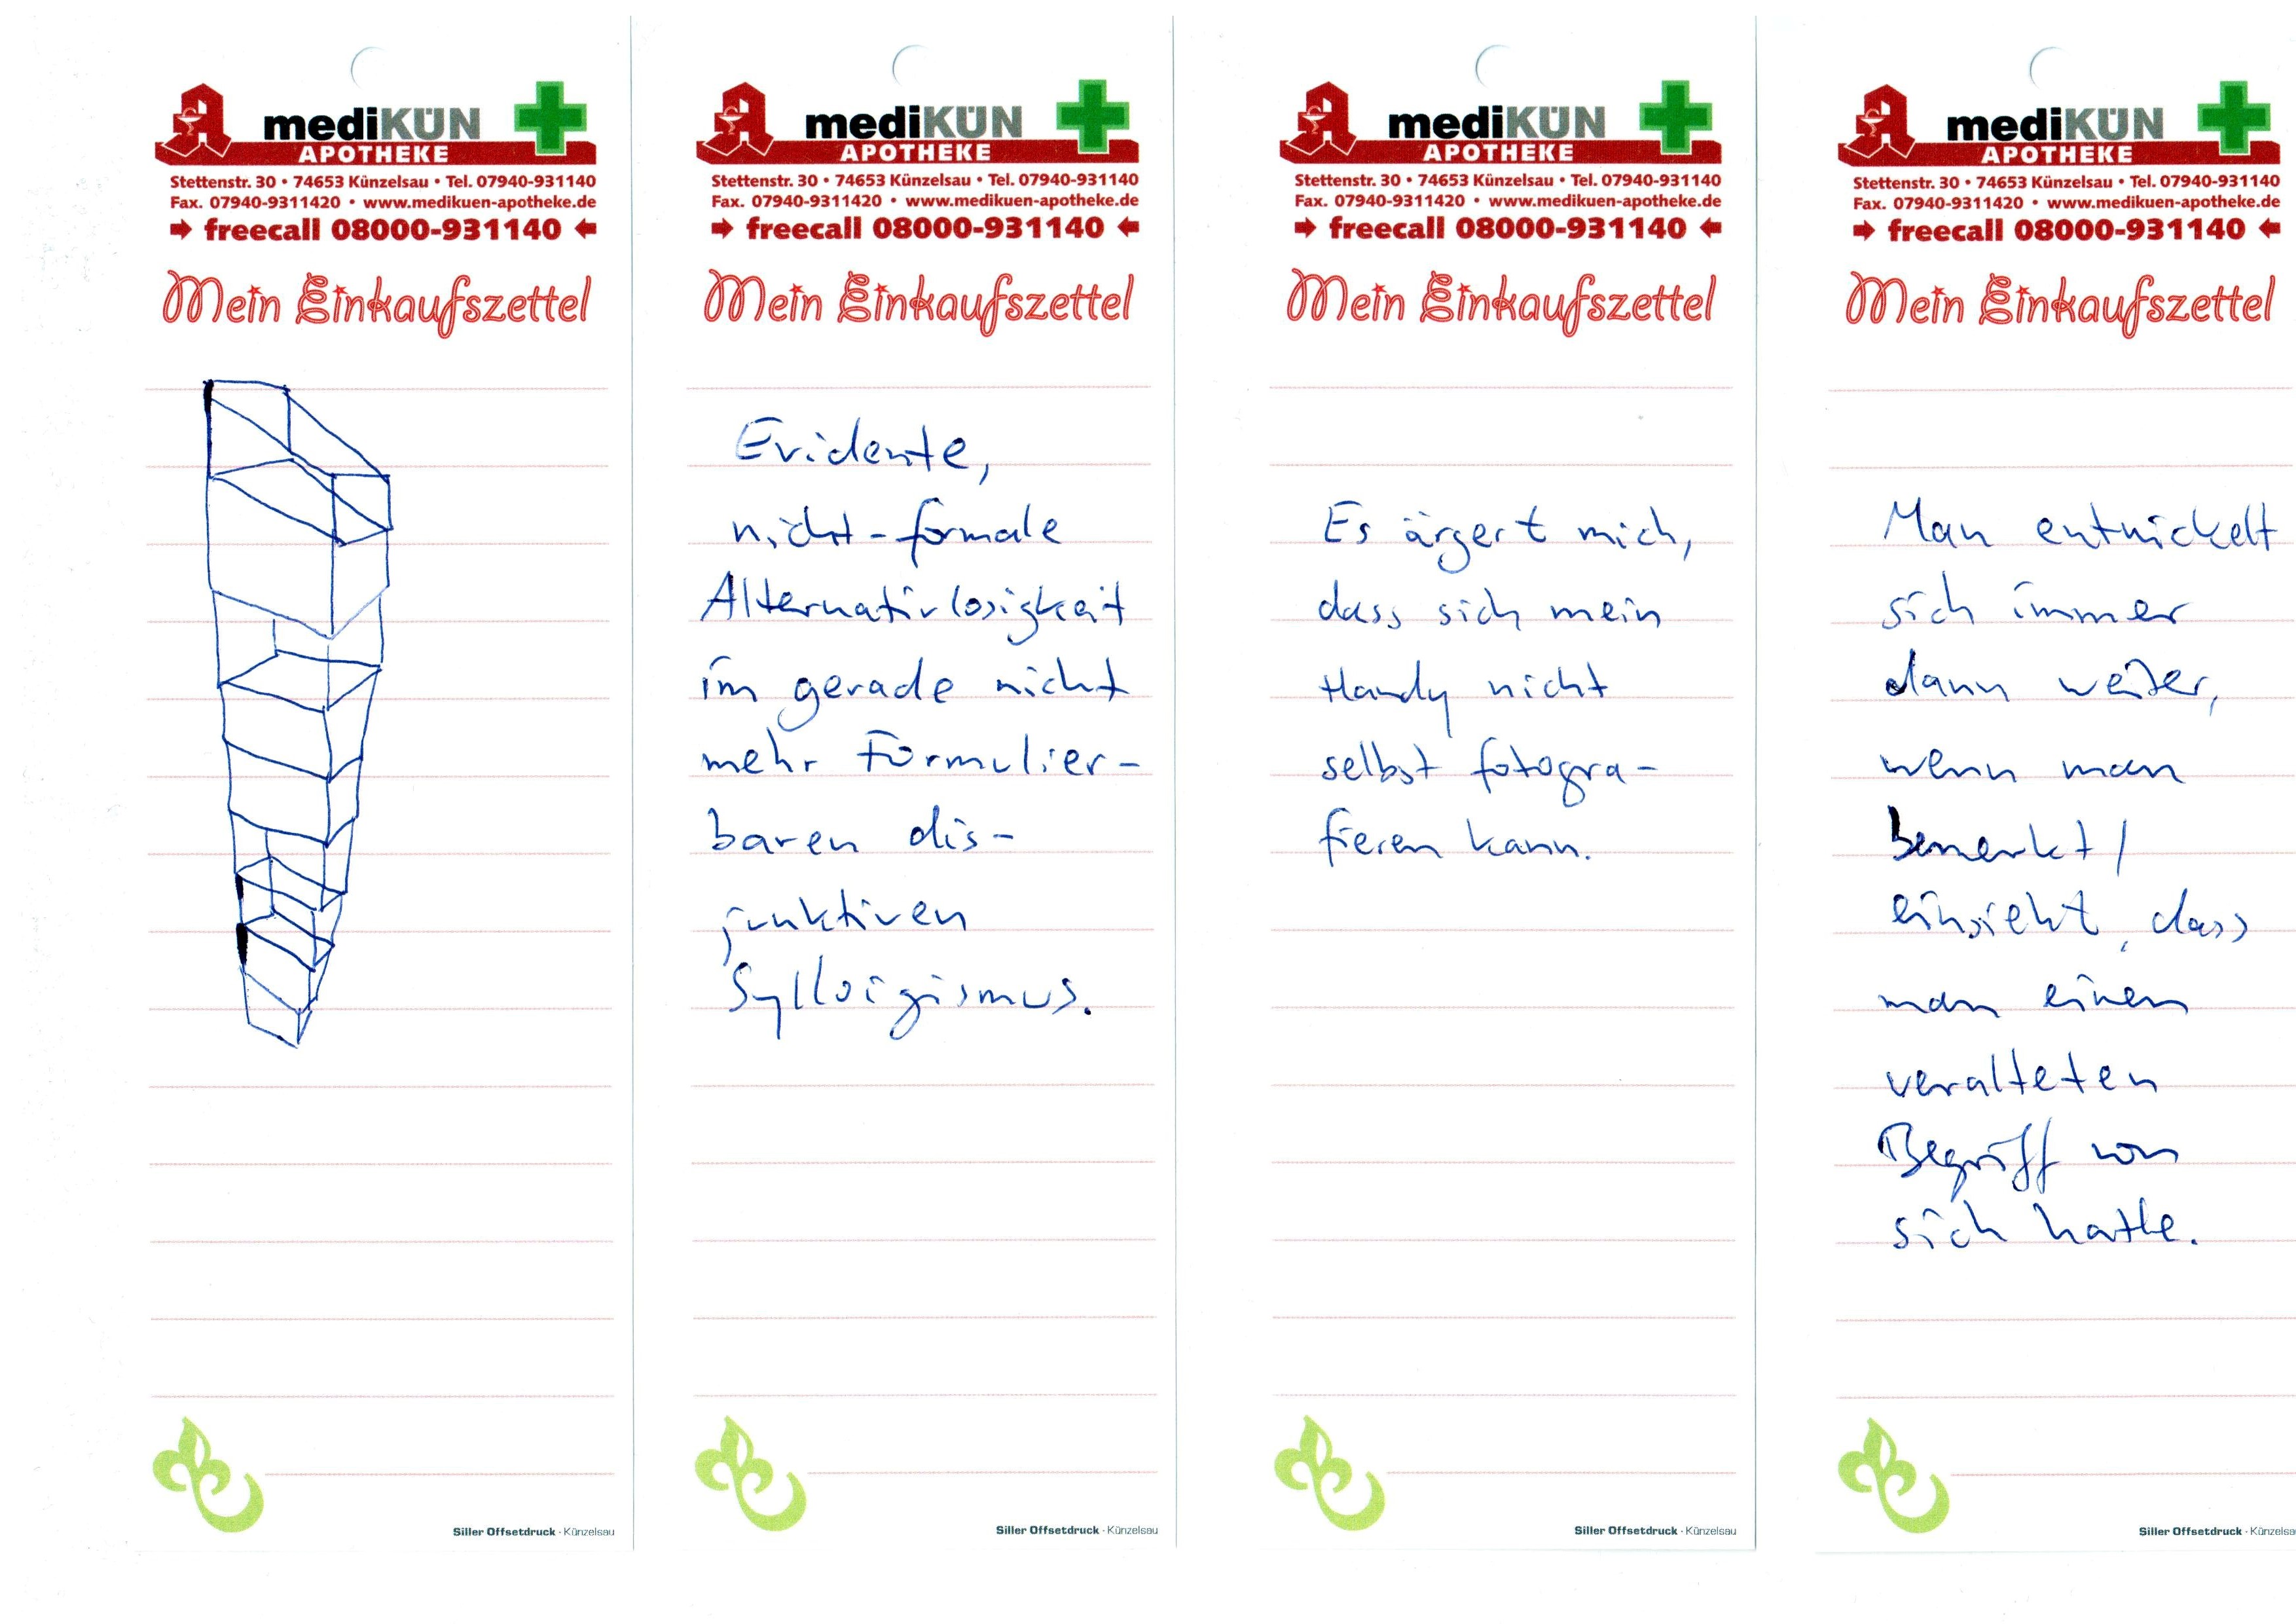 mediKÜN
APOTHEKE
Stettenstr. 30 • 74653 Künzelsau • Tel. 07940-931140
Fax. 07940-9311420 • www.medikuen-apotheke.de
➜ freecall 08000-931140 ←
Mein Einkaufszettel
Siller Offsetdruck · Künzelsau
mediKÜN
APOTHEKE
Stettenstr. 30 • 74653 Künzelsau • Tel. 07940-931140
Fax. 07940-9311420 • www.medikuen-apotheke.de
➜ freecall 08000-931140 ←
Mein Einkaufszettel
Evidente,
nicht-formale
Alternativlosigkeit
im gerade nicht
mehr Formulier-
baren dis-
junktiven
Sylloigismus.
Siller Offsetdruck · Künzelsau
mediKÜN
APOTHEKE
Stettenstr. 30 • 74653 Künzelsau • Tel. 07940-931140
Fax. 07940-9311420 • www.medikuen-apotheke.de
➜ freecall 08000-931140 ←
Mein Einkaufszettel
Es ärgert mich,
dass sich mein
Handy nicht
selbst fotogra-
fieren kann.
Siller Offsetdruck · Künzelsau
mediKÜN
APOTHEKE
Stettenstr. 30 • 74653 Künzelsau • Tel. 07940-931140
Fax. 07940-9311420 • www.medikuen-apotheke.de
➜ freecall 08000-931140 ←
Mein Einkaufszettel
Man entwickelt
sich immer
dann weiter,
wenn man
bemerkt/
einsieht, dass
man einen
veralteten
Begriff von
sich hatte.
Siller Offsetdruck · Künzelsa